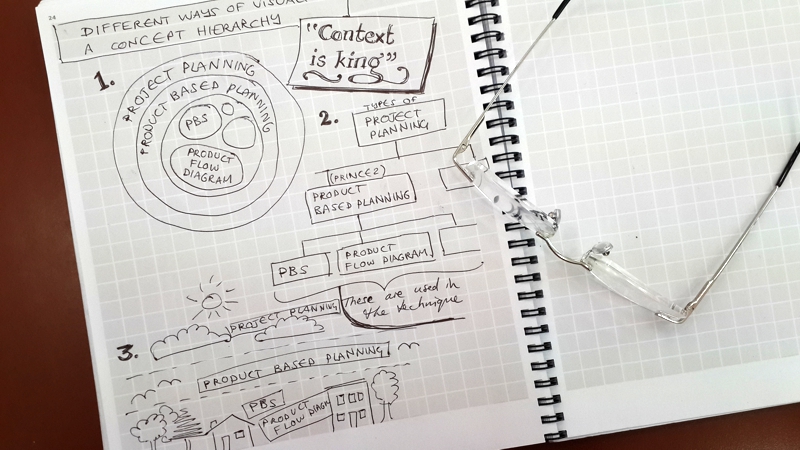 28
DIFFERENT WAYS OF
A CONCEPT HIERARCHY
"Context
is king"
1.
PROJECT PLANNING
PRODUCT BASED PLANNING
PBS
PRODUCT
FLOW
DIAGRAM
2.
TYPES OF
PROJECT
PLANNING
(PRINCE2)
PRODUCT
BASED PLANNING
PBS
PRODUCT
FLOW DIAGRAM
These are used in
the technique
3.
PROJECT PLANNING
PRODUCT BASED PLANNING
PBS
PRODUCT
FLOW DIAGRA